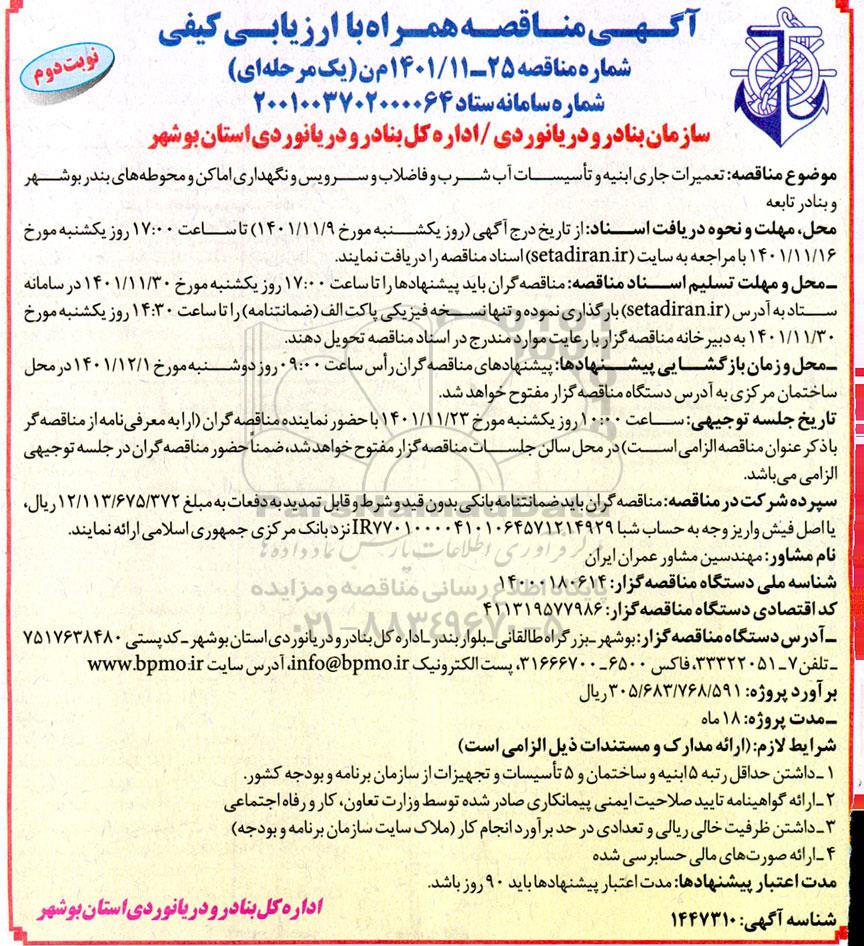 آگهی مناقصه همراه با ارزیابی کیفی
شماره مناقصه ۲۵ـ۱۴۰۱/۱۱م‌ن (یک مرحله‌ای)
نوبت دوم
شماره سامانه ستاد ۲۰۰۱۰۰۳۷۰۲۰۰۰۰۶۴
سازمان بنادر و دریانوردی / اداره کل بنادر و دریانوردی استان بوشهر
موضوع مناقصه: تعمیرات جاری ابنیه و تأسیسات آب شرب و فاضلاب و سرویس و نگهداری اماکن و محوطه‌های بندر بوشهر
و بنادر تابعه
محل، مهلت و نحوه دریافت اسناد: از تاریخ درج آگهی (روز یکشنبه مورخ ۱۴۰۱/۱۱/۹) تا ساعت ۱۷:۰۰ روز یکشنبه مورخ
۱۴۰۱/۱۱/۱۶ با مراجعه به سایت (setadiran.ir) اسناد مناقصه را دریافت نمایند.
ـ محل و مهلت تسلیم اسناد مناقصه: مناقصه‌گران باید پیشنهادها را تا ساعت ۱۷:۰۰ روز یکشنبه مورخ ۱۴۰۱/۱۱/۳۰ در سامانه
ستاد به آدرس (setadiran.ir) بارگذاری نموده و تنها نسخه فیزیکی پاکت الف (ضمانتنامه) را تا ساعت ۱۴:۳۰ روز یکشنبه مورخ
۱۴۰۱/۱۱/۳۰ به دبیرخانه مناقصه‌گزار با رعایت موارد مندرج در اسناد مناقصه تحویل دهند.
ـ محل و زمان بازگشایی پیشنهادها: پیشنهادهای مناقصه‌گران رأس ساعت ۰۹:۰۰ روز دوشنبه مورخ ۱۴۰۱/۱۲/۱ در محل
ساختمان مرکزی به آدرس دستگاه مناقصه‌گزار مفتوح خواهد شد.
تاریخ جلسه توجیهی: ساعت ۱۰:۰۰ روز یکشنبه مورخ ۱۴۰۱/۱۱/۲۳ با حضور نماینده مناقصه‌گران (ارا به معرفی‌نامه از مناقصه‌گر
با ذکر عنوان مناقصه الزامی است) در محل سالن جلسات مناقصه‌گزار مفتوح خواهد شد، ضمناً حضور مناقصه‌گران در جلسه توجیهی
الزامی می‌باشد.
سپرده شرکت در مناقصه: مناقصه‌گران باید ضمانتنامه بانکی بدون قید و شرط و قابل تمدید به دفعات به مبلغ ۱۲/۱۱۳/۶۷۵/۳۷۲ ریال،
یا اصل فیش واریز وجه به حساب شبا IR۷۷۰۱۰۰۰۰۴۱۰۱۰۶۴۵۷۱۲۱۴۹۲۹ نزد بانک مرکزی جمهوری اسلامی ارائه نمایند.
نام مشاور: مهندسین مشاور عمران ایران
شناسه ملی دستگاه مناقصه‌گزار: ۱۴۰۰۰۱۸۰۶۱۴
کد اقتصادی دستگاه مناقصه‌گزار: ۴۱۱۳۱۹۵۷۷۹۸۶
ـ آدرس دستگاه مناقصه‌گزار: بوشهر ـ بزرگراه طالقانی ـ بلوار بندر ـ اداره کل بنادر و دریانوردی استان بوشهر ـ کدپستی ۷۵۱۷۶۳۸۴۸۰
ـ تلفن ۷ـ۳۳۳۲۲۰۵۱، فاکس ۶۵۰۰ـ۳۱۶۶۶۷۰۰، پست الکترونیک info@bpmo.ir، آدرس سایت www.bpmo.ir
برآورد پروژه: ۳۰۵/۶۸۳/۷۶۸/۵۹۱ ریال
ـ مدت پروژه: ۱۸ ماه
شرایط لازم: (ارائه مدارک و مستندات ذیل الزامی است)
۱ـ داشتن حداقل رتبه ۵ ابنیه و ساختمان و ۵ تأسیسات و تجهیزات از سازمان برنامه و بودجه کشور.
۲ـ ارائه گواهینامه تایید صلاحیت ایمنی پیمانکاری صادر شده توسط وزارت تعاون، کار و رفاه اجتماعی
۳ـ داشتن ظرفیت خالی ریالی و تعدادی در حد برآورد انجام کار (ملاک سایت سازمان برنامه و بودجه)
۴ـ ارائه صورت‌های مالی حسابرسی شده
مدت اعتبار پیشنهادها: مدت اعتبار پیشنهادها باید ۹۰ روز باشد.
شناسه آگهی: ۱۴۴۷۳۱۰
اداره کل بنادر و دریانوردی استان بوشهر
پایگاه اطلاع رسانی مناقصه و مزایده
۰۲۱-۸۸۳۴۹۶۷۰-۵